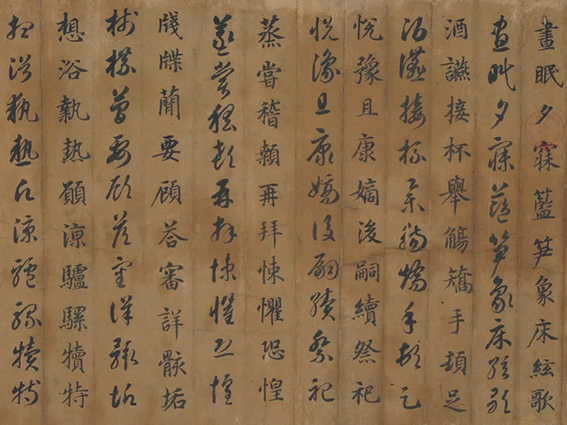 晝眠夕寐藍笋象床絃歌
晝眠夕寐藍笋象床絃歌
酒讌接杯舉觴矯手頓足
酒讌接杯舉觴矯手頓足
悅豫且康嫡後嗣續祭祀
悅豫且康嫡後嗣續祭祀
蒸嘗稽顙再拜悚懼恐惶
蒸嘗稽顙再拜悚懼恐惶
牋牒簡要顧答審詳骸垢
牋牒簡要顧答審詳骸垢
想浴執熱願涼驢騾犢特
想浴執熱願涼驢騾犢特